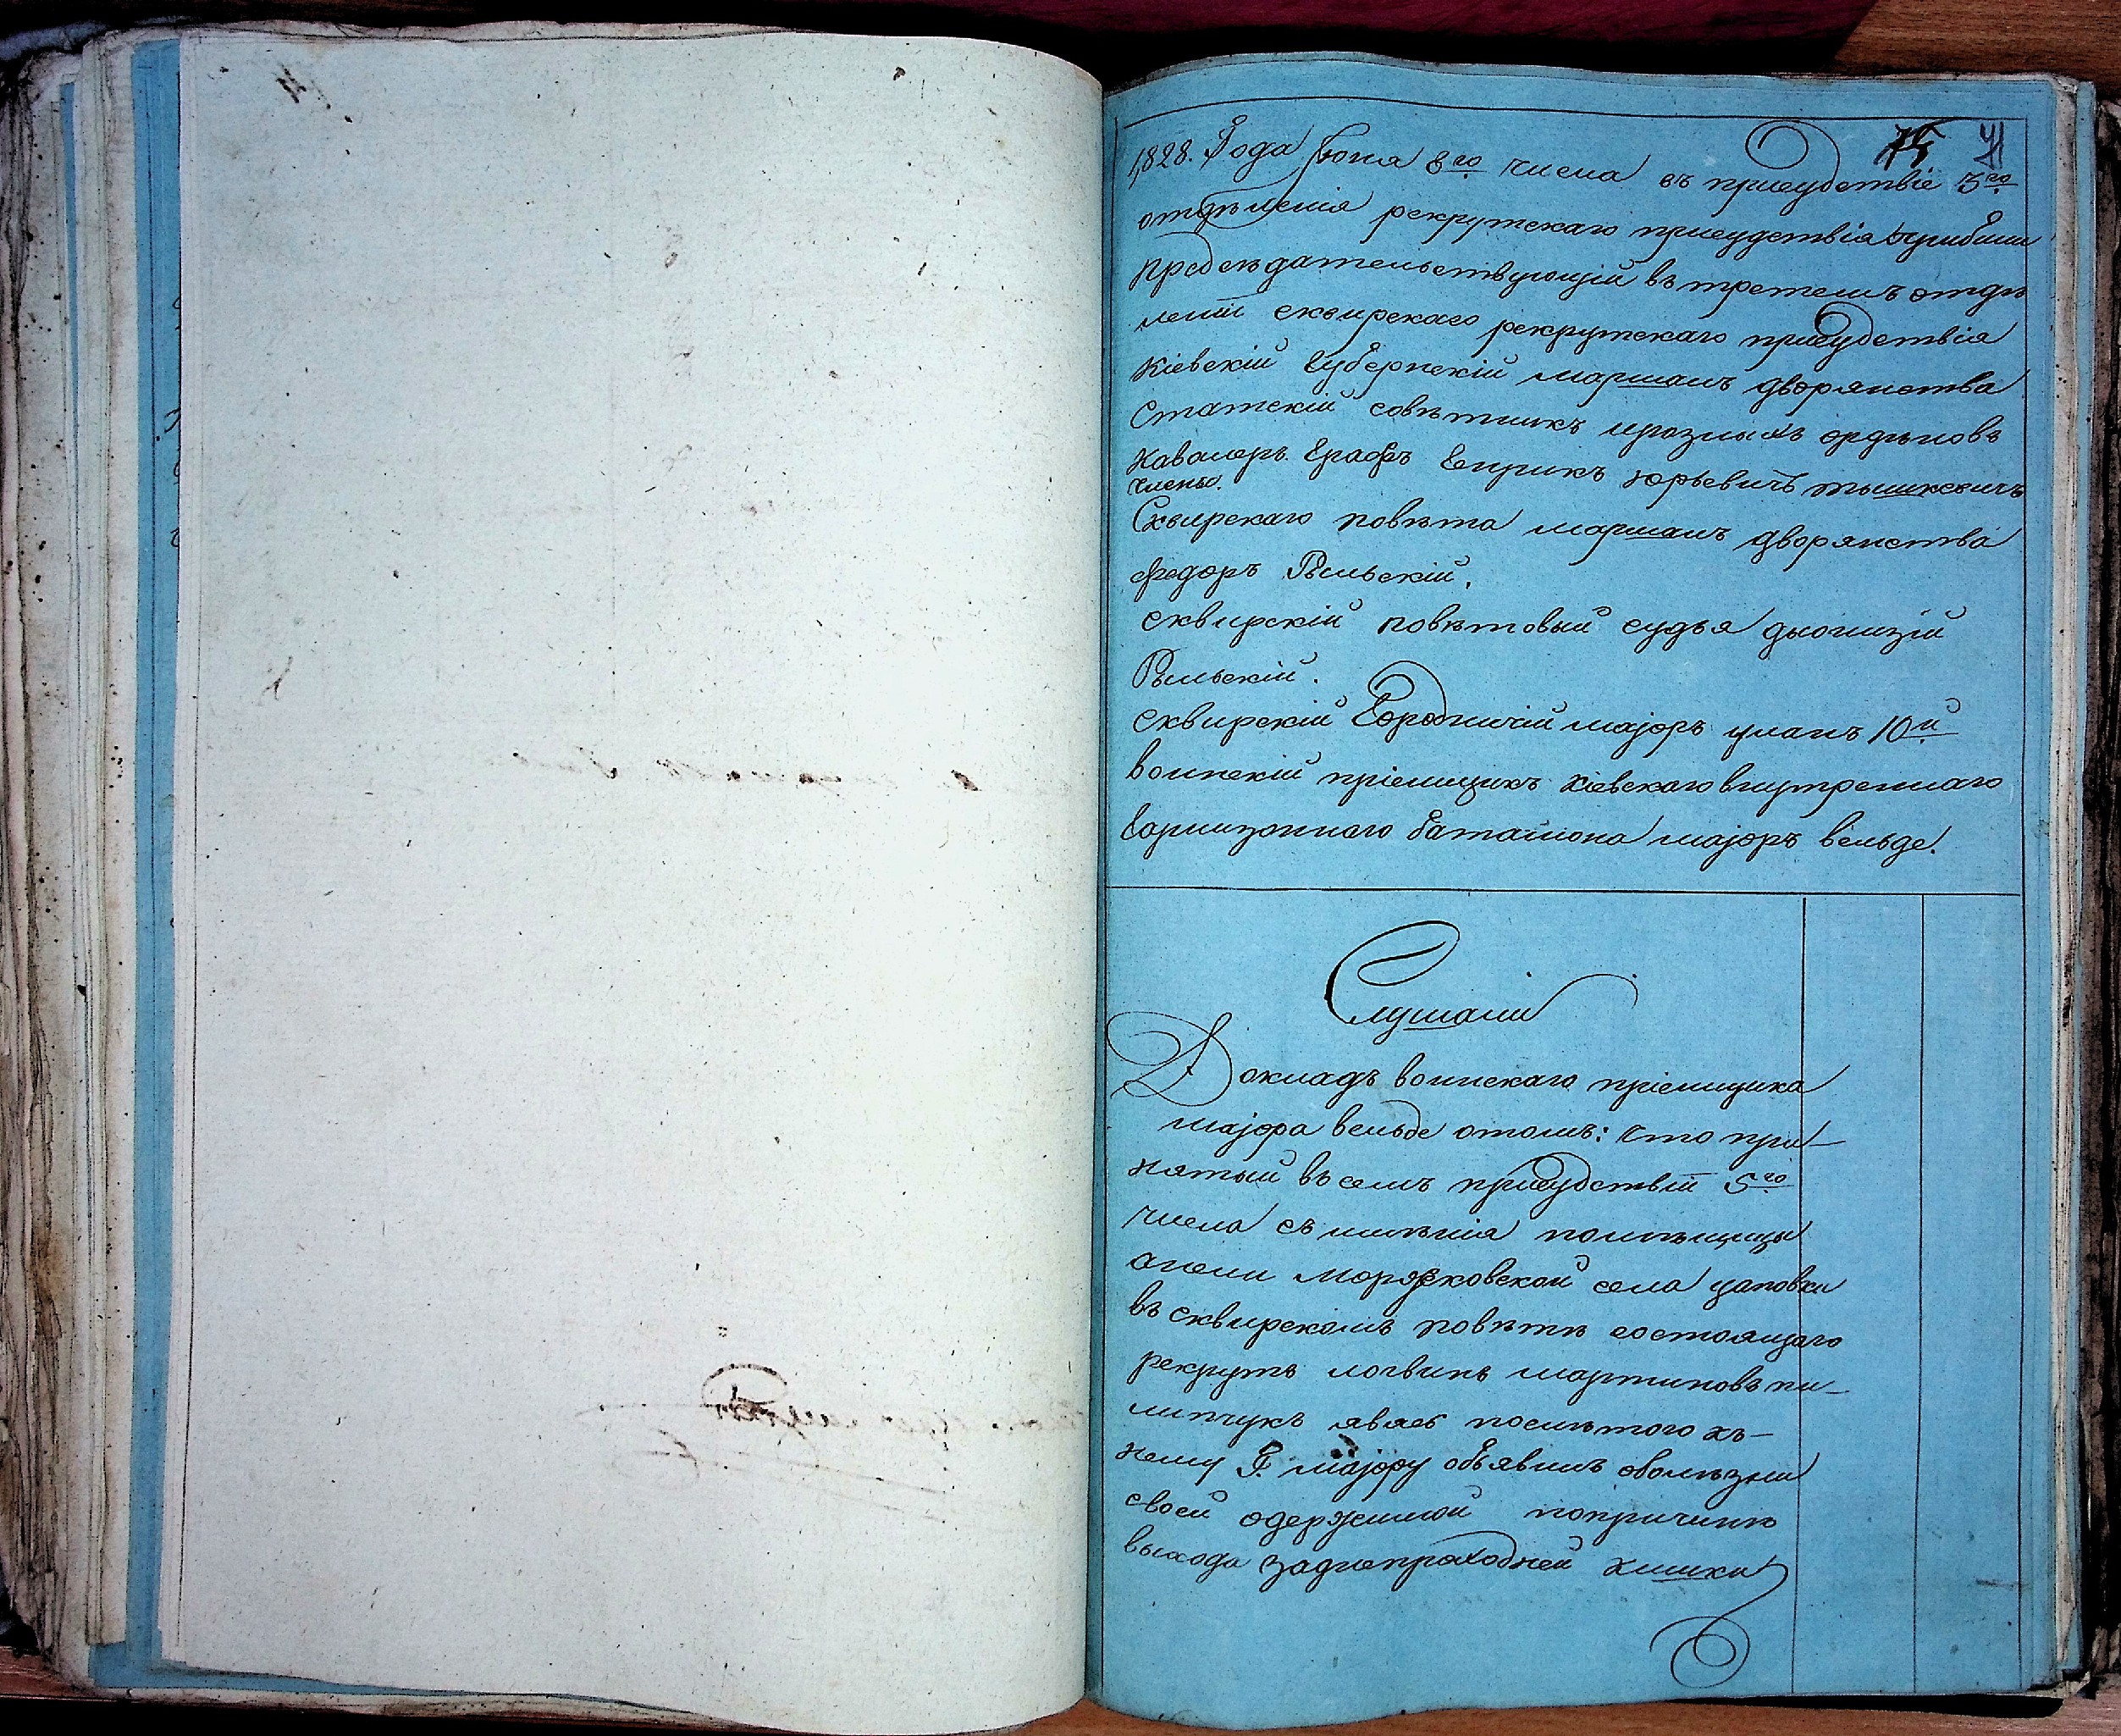 75 71
1828. Года Іюня 8го числа въ присудствіе 3го
отдѣленія рекрутскаго присудствія прибыли
предсѣдательствующій въ третемъ отдѣ
леніи сквирскаго рекрутскаго присудствія
Кіевскій Губернскій маршалъ дворянства
Статскій совѣтникъ иразныхъ ордѣновъ
Кавалеръ Графъ Генрикъ Юрьевичъ тышкевичъ
члены.
Сквирскаго повѣта маршалъ дворянства
федоръ Рыльскій.
сквирскій повѣтовый судья дыонизій
Рыльскій.
сквирскій Городничій маіоръ уланъ 10й
воинскій пріемщикъ Кіевскаго внутренняго
Гарнизоннаго баталіона маіоръ вельде.
Слушали
Докладъ воинскаго пріемщика
маіора вельде отомъ: что при-
нятый въ семъ присудствіи 5го
числа съ имѣнія помѣщицы
анели Моржковской села цаповки
въ сквирскомъ повѣтѣ состоящаго
рекрутъ логвинъ мартиновъ пи-
липчукъ явясь посимѣтого къ-
нему Г. маіору объявилъ оболѣзни
своей одержимой попричинѣ
выхода заднепроходней кишки